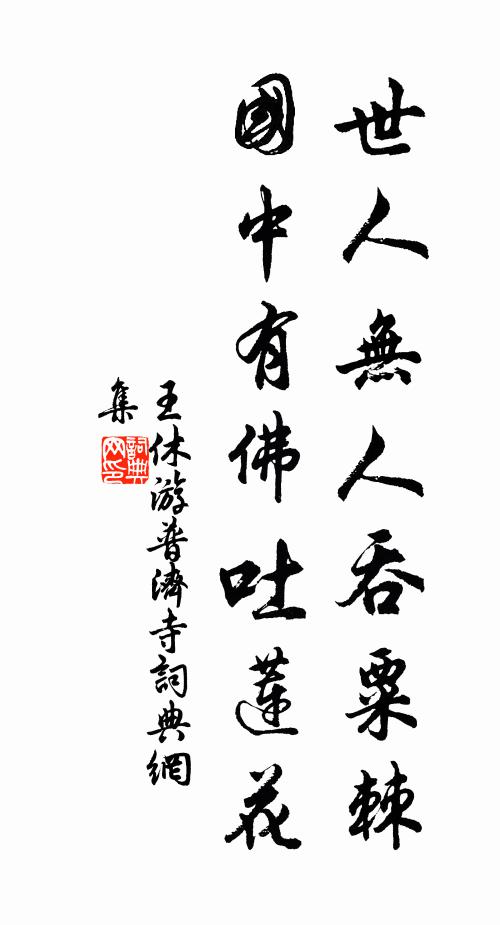 世人無人吞粟棘
國中有佛吐蓮花
王休游普濟寺詞典網
集
詞典網印